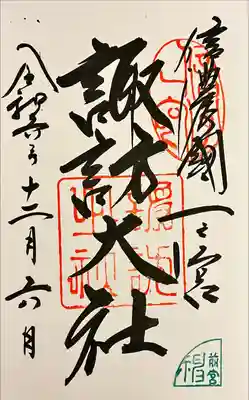 信濃國一之宮
諏訪大社
令和六年十二月六日
前宮